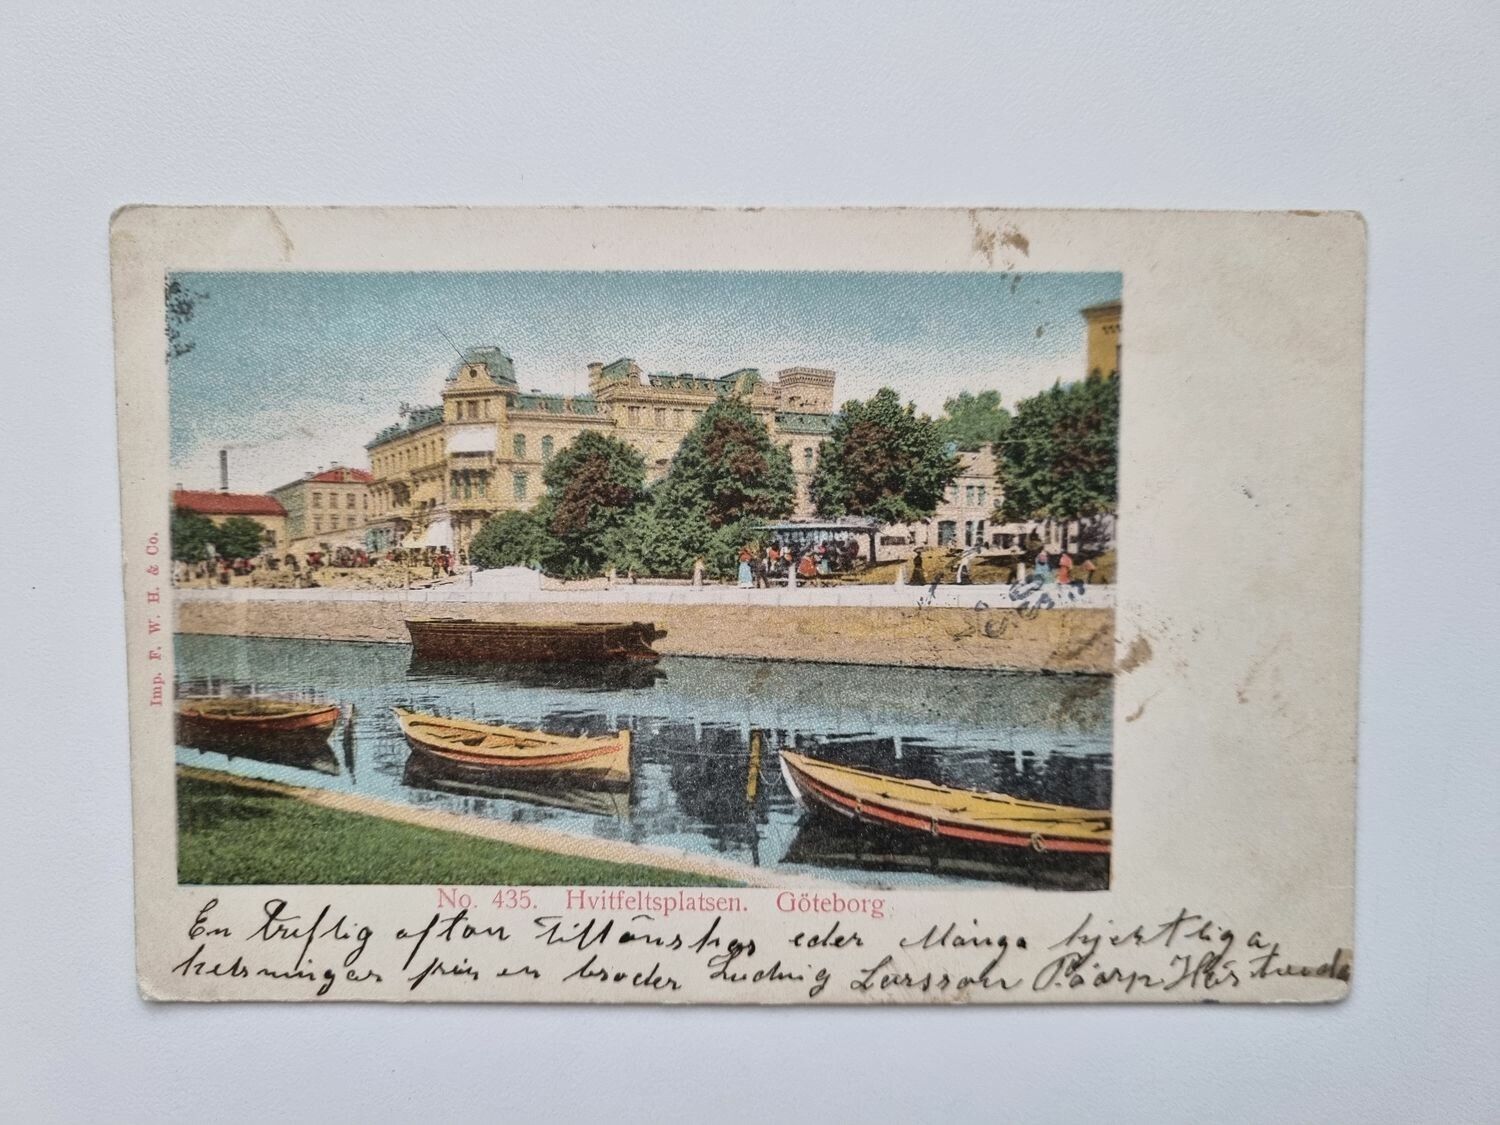 Imp. F. W. H. & Co.
No. 435. Hvitfeltsplatsen. Göteborg
En treflig afton tillönskas eder Många hjertliga
helsningar från en broder Ludvig Larsson Påarp